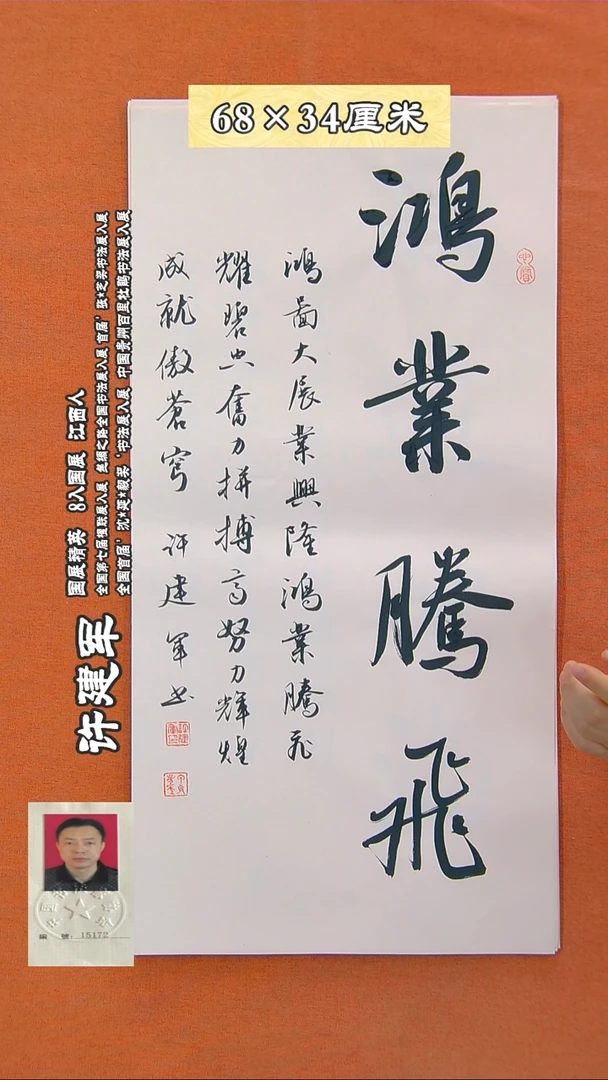 68×34厘米
鴻業騰飛
鴻圖大展業興隆鴻業騰飛
耀碧空奮力拼搏高努力輝煌
成就傲蒼穹 许建軍书
许建军
国展精英 8入国展 江西人
全国第七届楹联展入展 丝绸之路全国书法展入展 首届’张*芝奖书法展入展
全国首届’沈*延*毅奖‘书法展入展 中国贵州百里杜鹃书法展入展
編 號: 15172